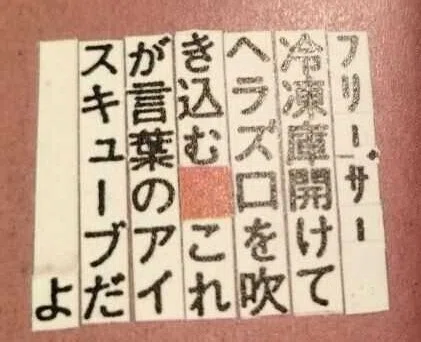 フリーザー
冷凍庫開けて
ヘラズ口を吹
き込む　これ
が言葉のアイ
スキューブだ
よ